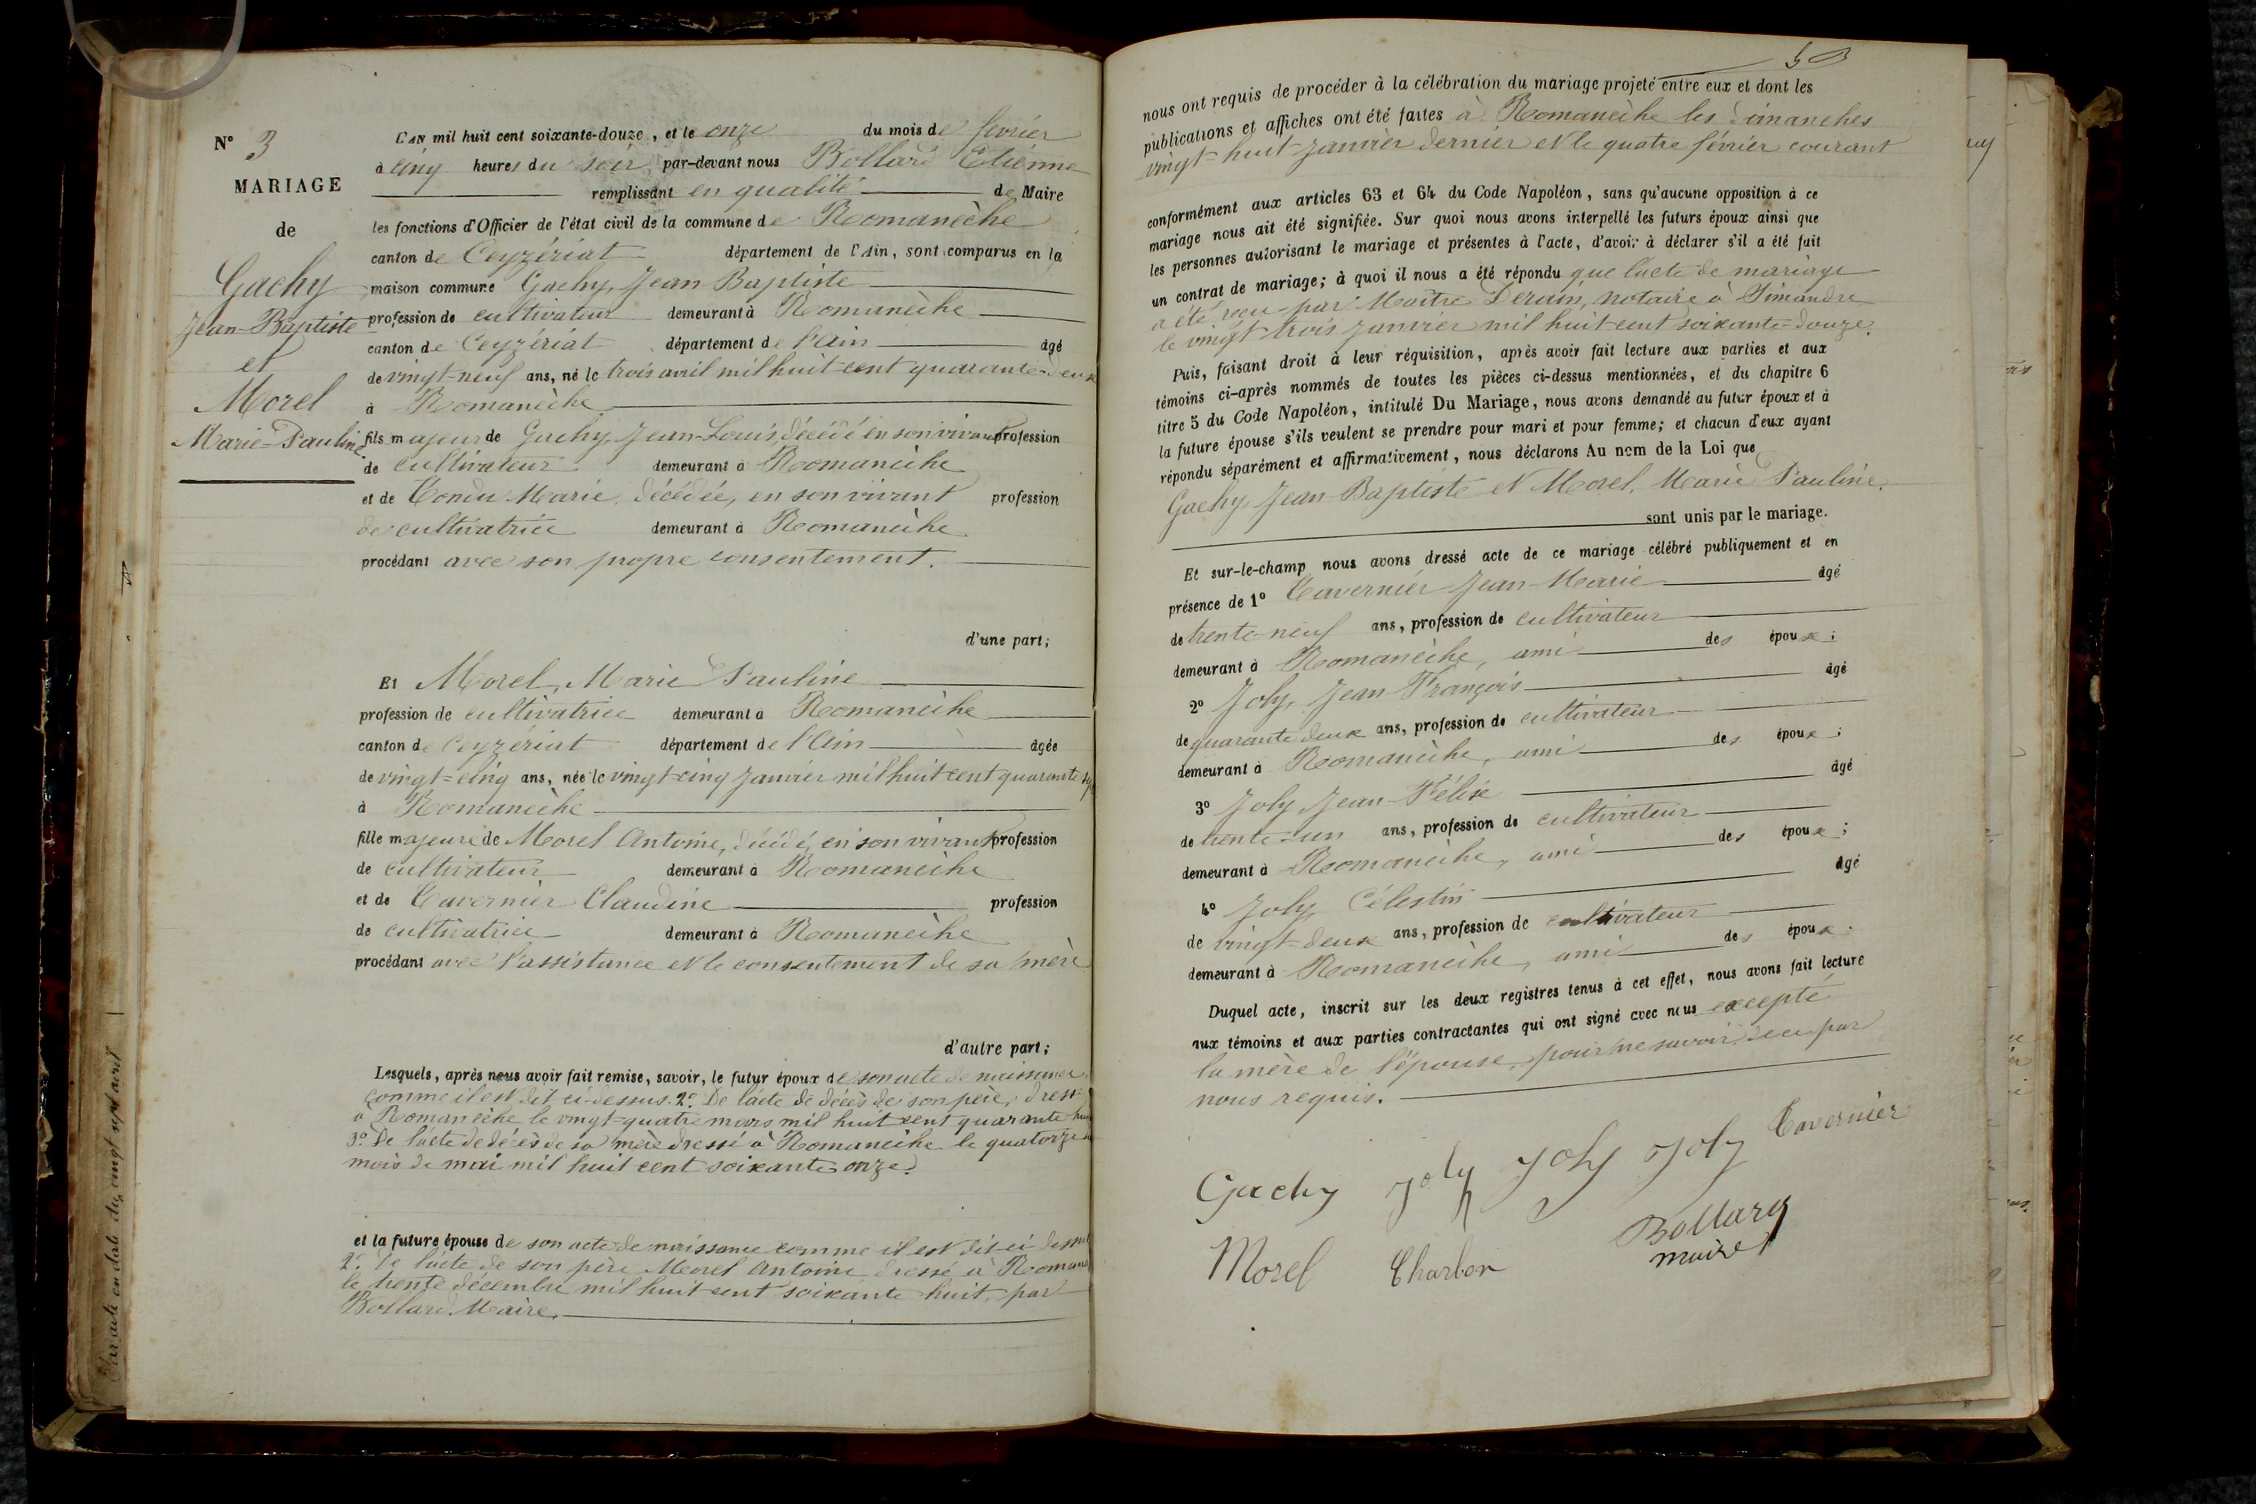 N° 3
MARIAGE
de
Gachy
Jean-Baptiste
et
Morel
Marie-Pauline
L'AN mil huit cent soixante-douze, et le onze du mois de février
à cinq heures du soir, par-devant nous Bollard Etienne
remplissant en qualité de Maire
les fonctions d'Officier de l'état civil de la commune de Romanèche
canton de Ceyzériat département de l'Ain, sont comparus en la
maison commune Gachy, Jean Baptiste
profession de cultivateur demeurant à Romanèche
canton de Ceyzériat département de l'Ain âgé
de vingt-neuf ans, né le trois avril mil huit-cent quarante-deux
à Romanèche
fils majeur de Gachy, Jean-Louis, décédé en son vivant profession
de cultivateur demeurant à Romanèche
et de Tondu Marie, décédée, en son vivant profession
de cultivatrice demeurant à Romanèche
procédant avec son propre consentement.
d'une part;
Et Morel, Marie Pauline
profession de cultivatrice demeurant à Romanèche
canton de Ceyzériat département de l'Ain âgée
de vingt-cinq ans, née le vingt-cinq janvier mil huit cent quarante sept
à Romanèche
fille majeure de Morel Antoine, décédé, en son vivant profession
de cultivateur demeurant à Romanèche
et de Tavernier Claudine profession
de cultivatrice demeurant à Romanèche
procédant avec l'assistance et le consentement de sa mère
d'autre part;
Lesquels, après nous avoir fait remise, savoir, le futur époux de son acte de naissance
comme il est dit ci-dessus. 2° De l'acte de décès de son père, dressé
à Romanèche le vingt-quatre mars mil huit cent quarante huit
3° De l'acte de décès de sa mère dressé à Romanèche le quatorze
mois de mai mil huit cent soixante onze.
et la future épouse de son acte de naissance comme il est dit ci dessus
2° De l'acte de son père Morel Antoine dressé à Romanèche
le trente décembre mil huit cent soixante huit, par
Bollard Maire.
50
nous ont requis de procéder à la célébration du mariage projeté entre eux et dont les
publications et affiches ont été faites à Romanèche les dimanches
vingt-huit janvier dernier et le quatre février courant
conformément aux articles 63 et 64 du Code Napoléon, sans qu'aucune opposition à ce
mariage nous ait été signifiée. Sur quoi nous avons interpellé les futurs époux ainsi que
les personnes autorisant le mariage et présentes à l'acte, d'avoir à déclarer s'il a été fait
un contrat de mariage; à quoi il nous a été répondu que l'acte de mariage
a été reçu par Maître Derain, notaire à Simandre
le vingt-trois janvier mil huit cent soixante-douze.
Puis, faisant droit à leur réquisition, après avoir fait lecture aux parties et aux
témoins ci-après nommés de toutes les pièces ci-dessus mentionnées, et du chapitre 6
titre 5 du Code Napoléon, intitulé Du Mariage, nous avons demandé au futur époux et à
la future épouse s'ils veulent se prendre pour mari et pour femme; et chacun d'eux ayant
répondu séparément et affirmativement, nous déclarons Au nom de la Loi que
Gachy, Jean Baptiste et Morel, Marie Pauline.
sont unis par le mariage.
Et sur-le-champ nous avons dressé acte de ce mariage célébré publiquement et en
présence de 1° Tavernier Jean-Marie âgé
de trente-neuf ans, profession de cultivateur
demeurant à Romanèche, ami des époux;
2° Joly, Jean François âgé
de quarante deux ans, profession de cultivateur
demeurant à Romanèche, ami des époux;
3° Joly Jean-Félix âgé
de trente-un ans, profession de cultivateur
demeurant à Romanèche, ami des époux;
4° Joly Célestin âgé
de vingt-deux ans, profession de cultivateur
demeurant à Romanèche, ami des époux.
Duquel acte, inscrit sur les deux registres tenus à cet effet, nous avons fait lecture
aux témoins et aux parties contractantes qui ont signé avec nous excepté
la mère de l'épouse, pour ne savoir, de ce par
nous requis.
Gachy Joly Joly Joly Tavernier
Morel Charbon Bollard
maire